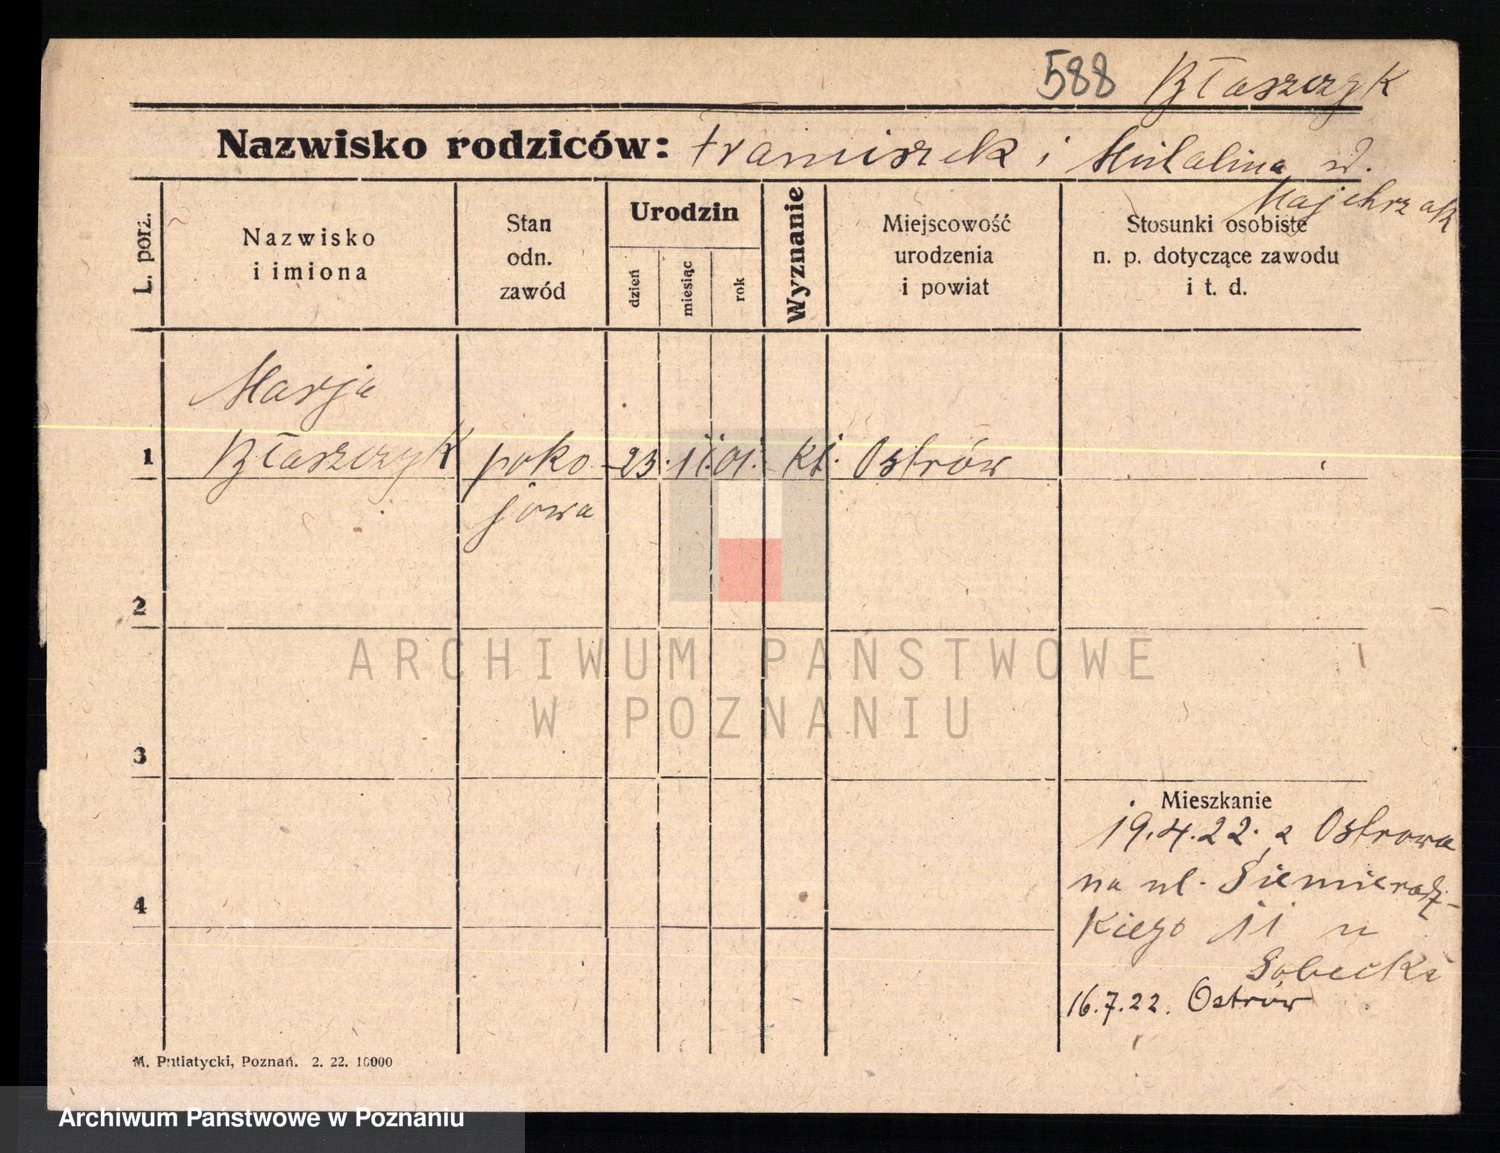 588 Błaszczyk
Nazwisko rodziców: Franciszek i Michalina
Majchrzak
L. porz.
Nazwisko
i imiona
Stan
odn.
zawód
Urodzin
dzień
miesiąc
rok
Wyznanie
Miejscowość
urodzenia
i powiat
Stosunki osobiste
n. p. dotyczące zawodu
i t. d.
Marja
1 Błaszczyk poko 23. 11. 01. kt. Ostrów
jowa
2
3
4
Mieszkanie
19.4.22. z Ostrowa
na ul. Siemieradz-
kiego 11 u
Sobecki
16.7.22. Ostrów
M. Putiatycki, Poznań. 2. 22. 10000
ARCHIWUM PAŃSTWOWE
W POZNANIU
Archiwum Państwowe w Poznaniu